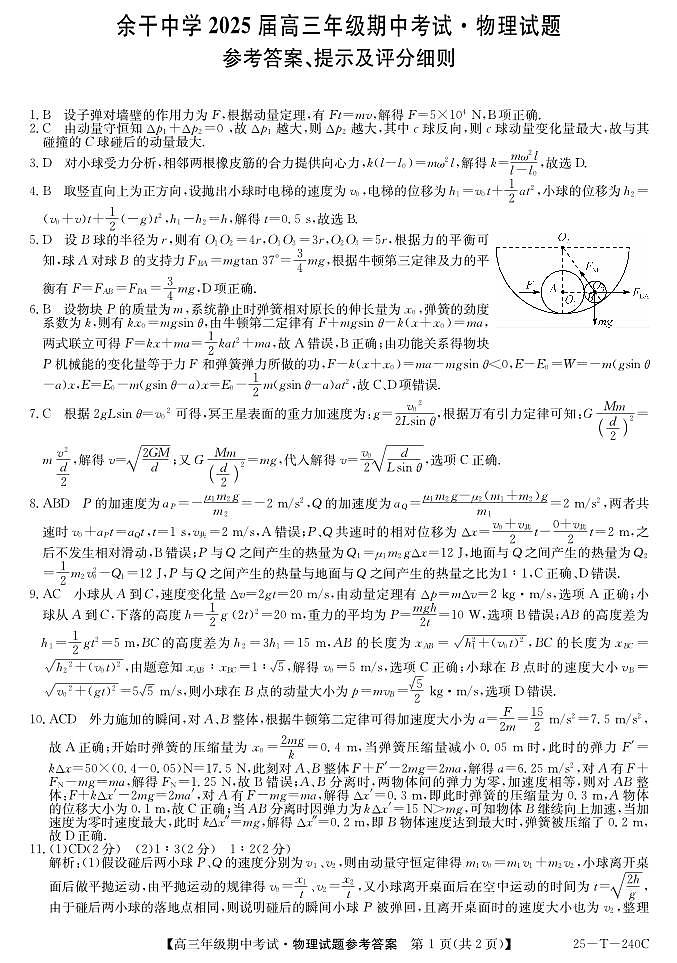 余干中学 2025 届高三年级期中考试·物理试题
参考答案、提示及评分细则
1. B 设子弹对墙壁的作用力为 F,根据动量定理,有 Ft=mv,解得 F=5×10⁴ N,B项正确.
2. C 由动量守恒知 Δp₁+Δp₂=0,故 Δp₁ 越大,则 Δp₂ 越大,其中 c 球反向,则 c 球动量变化量最大,故与其
碰撞的 C 球碰后的动量最大.
3. D 对小球受力分析,相邻两根橡皮筋的合力提供向心力,k(l-l₀)=mω²l,解得 k=mω²l/(l-l₀),故选 D.
4. B 取竖直向上为正方向,设抛出小球时电梯的速度为 v₀,电梯的位移为 h₁=v₀t+1/2 at²,小球的位移为 h₂=
(v₀+v)t+1/2(-g)t²,h₁-h₂=h,解得 t=0.5 s,故选 B.
5. D 设 B 球的半径为 r,则有 O₁O₂=4r,O₁O₃=3r,O₂O₃=5r,根据力的平衡可
知,球 A 对球 B 的支持力 F_BA=mgtan 37°=3/4 mg,根据牛顿第三定律及力的平
衡有 F=F_AB=F_BA=3/4 mg,D 项正确.
6. B 设物块 P 的质量为 m,系统静止时弹簧相对原长的伸长量为 x₀,弹簧的劲度
系数为 k,则有 kx₀=mgsin θ,由牛顿第二定律有 F+mgsin θ-k(x+x₀)=ma,
两式联立可得 F=kx+ma=1/2 kat²+ma,故 A 错误,B 正确;由功能关系得物块
P 机械能的变化量等于力 F 和弹簧弹力所做的功,F-k(x+x₀)=ma-mgsin θ<0,E-E₀=W=-m(gsin θ
-a)x,E=E₀-m(gsin θ-a)x=E₀-1/2 m(gsin θ-a)at²,故 C、D 项错误.
7. C 根据 2gLsin θ=v₀² 可得,冥王星表面的重力加速度为:g=v₀²/(2Lsin θ),根据万有引力定律可知:G Mm/(d/2)²=
m v²/(d/2),解得 v=√(2GM/d);又 G Mm/(d/2)²=mg,代入解得 v=v₀/2 √(d/(Lsin θ)),选项 C 正确.
8. ABD P 的加速度为 a_P=-μ₁m₂g/m₂=-2 m/s²,Q 的加速度为 a_Q=(μ₁m₂g-μ₂(m₁+m₂)g)/m₁=2 m/s²,两者共
速时 v₀+a_Pt=a_Qt,t=1 s,v共=2 m/s,A 错误;P、Q 共速时的相对位移为 Δx=(v₀+v共)/2 t-(0+v共)/2 t=2 m,之
后不发生相对滑动,B 错误;P 与 Q 之间产生的热量为 Q₁=μ₁m₂gΔx=12 J,地面与 Q 之间产生的热量为 Q₂
=1/2 m₂v₀²-Q₁=12 J,P 与 Q 之间产生的热量与地面与 Q 之间产生的热量之比为1∶1,C 正确、D 错误.
9. AC 小球从 A 到 C,速度变化量 Δv=2gt=20 m/s,由动量定理有 Δp=mΔv=2 kg·m/s,选项 A 正确;小
球从 A 到 C,下落的高度 h=1/2 g(2t)²=20 m,重力的平均为 P=mgh/2t=10 W,选项 B 错误;AB 的高度差为
h₁=1/2 gt²=5 m,BC 的高度差为 h₂=3h₁=15 m,AB 的长度为 x_AB=√(h₁²+(v₀t)²),BC 的长度为 x_BC=
√(h₂²+(v₀t)²),由题意知 x_AB∶x_BC=1∶√5,解得 v₀=5 m/s,选项 C 正确;小球在 B 点时的速度大小 v_B=
√(v₀²+(gt)²)=5√5 m/s,则小球在 B 点的动量大小为 p=mv_B=√5/2 kg·m/s,选项 D 错误.
10. ACD 外力施加的瞬间,对 A、B 整体,根据牛顿第二定律可得加速度大小为 a=F/2m=15/2 m/s²=7.5 m/s²,
故 A 正确;开始时弹簧的压缩量为 x₀=2mg/k=0.4 m,当弹簧压缩量减小 0.05 m 时,此时的弹力 F′=
kΔx=50×(0.4-0.05)N=17.5 N,此刻对 A、B 整体 F+F′-2mg=2ma,解得 a=6.25 m/s²,对 A 有 F+
F_N-mg=ma,解得 F_N=1.25 N,故 B 错误;A、B 分离时,两物体间的弹力为零,加速度相等,则对 AB 整
体:F+kΔx′-2mg=2ma′,对 A 有 F-mg=ma′,解得 Δx′=0.3 m,即此时弹簧的压缩量为 0.3 m,A 物体
的位移大小为 0.1 m,故 C 正确;当 AB 分离时因弹力为 kΔx′=15 N>mg,可知物体 B 继续向上加速,当加
速度为零时速度最大,此时 kΔx″=mg,解得 Δx″=0.2 m,即 B 物体速度达到最大时,弹簧被压缩了 0.2 m,
故 D 正确.
11. (1)CD(2 分) (2)1∶3(2 分) 1∶2(2 分)
解析:(1)假设碰后两小球 P、Q 的速度分别为 v₁、v₂,则由动量守恒定律得 m₁v₀=m₁v₁+m₂v₂,小球离开桌
面后做平抛运动,由平抛运动的规律得 v₀=x₁/t、v₂=x₂/t,又小球离开桌面后在空中运动的时间为 t=√(2h/g),
由于碰后两小球的落地点相同,则说明碰后的瞬间小球 P 被弹回,且离开桌面时的速度大小也为 v₂,整理
【高三年级期中考试·物理试题参考答案 第 1 页(共 2 页)】 25-T-240C